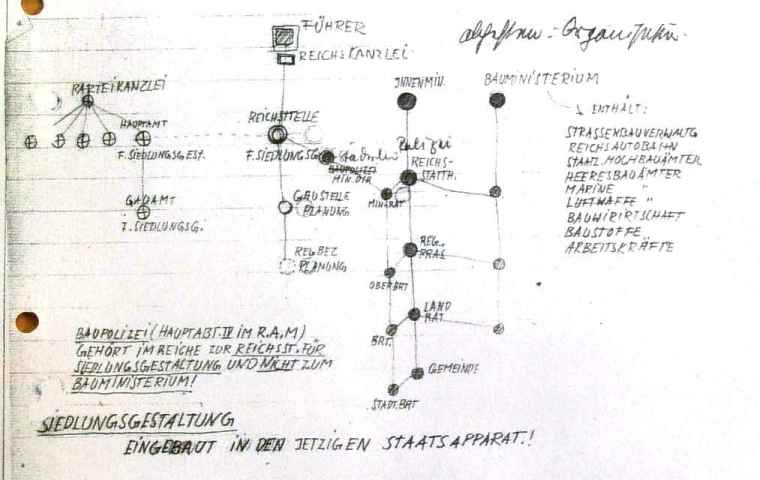 FÜHRER
REICHSKANZLEI
PARTEIKANZLEI
HAUPTAMT
F. SIEDLUNGSGEST.
GAUAMT
F. SIEDLUNGSG.
REICHSTELLE
F. SIEDLUNGSG
BAUPOLIZEI
MIN. DIR
GAUSTELLE
PLANUNG
REG. BEZ
PLANUNG
INNENMIN.
Polizei
REICHS-
STATTH.
MIN. RAT
REG.
PRAS
OBERBRT
LAND
RAT.
BRT.
GEMEINDE
STADT. BRT
BAUMINISTERIUM
ENTHÄLT:
STRASSENBAUVERWALTG
REICHSAUTOBAHN
STAATL. HOCHBAUÄMTER
HEERESBAUÄMTER
MARINE "
LUFTWAFFE "
BAUWIRTSCHAFT
BAUSTOFFE
ARBEITSKRÄFTE
BAUPOLIZEI (HAUPTABT. IV IM R.A.M)
GEHÖRT IM REICHE ZUR REICHSST. FÜR
SIEDLUNGSGESTALTUNG UND NICHT ZUM
BAUMINISTERIUM!
SIEDLUNGSGESTALTUNG
EINGEBAUT IN DEN JETZIGEN STAATSAPPARAT.!